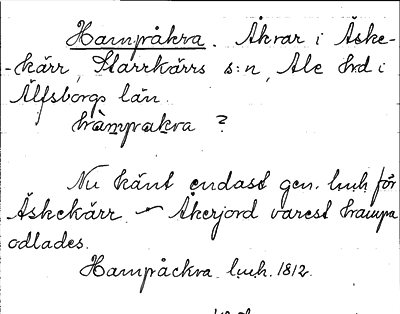 Hampåkra. Åkrar i Äske-
-kärr, Starrkärrs s:n, Ale hrd i
Älfsborgs län.
hàmprakra ?
Nu känt endast gen. lmh för
Äskekärr. – Åkerjord varest hampa
odlades.
Hampåckra lmh. 1812.